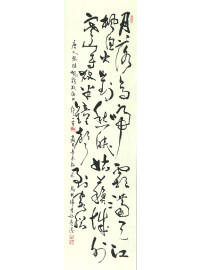 月落烏啼霜滿天江
楓漁火對愁眠姑蘇城外
寒山寺夜半鐘聲到客船
唐人張繼楓橋夜泊